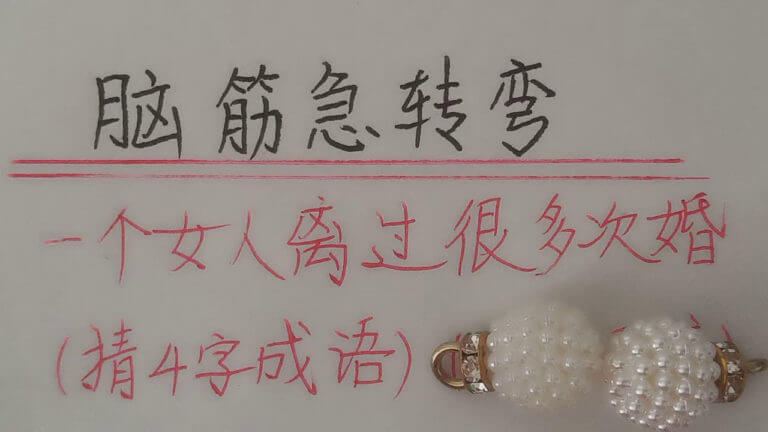 脑筋急转弯
一个女人离过很多次婚
(猜4字成语)